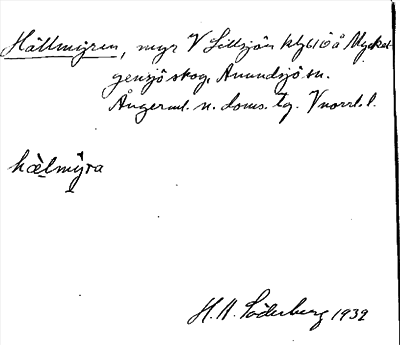 Hällmyren, myr V Lillsjön kbl10å Myckel-
gensjö skog, Anundsjö sn.
Ångerml. n. doms. tg. Vnorrl. l.
hælmyra
H. A. Söderberg 1932